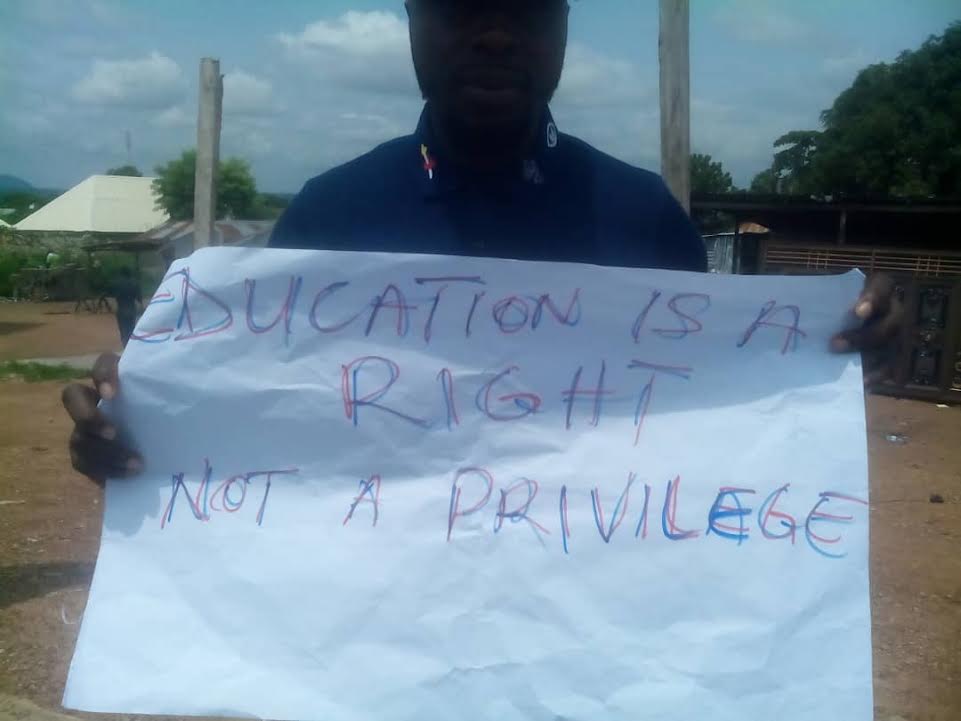 EDUCATION IS A
RIGHT
NOT A PRIVILEGE